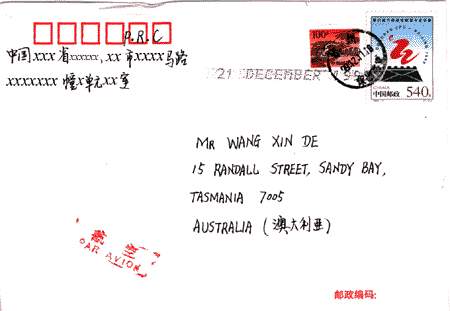 P.R.C
中国xxx省xxxxx,xx市xxxx马路
xxxxxxx幢x单元xx室
100
中国邮政 540分
21 DECEMBER 199
MR WANG XIN DE
15 RANDALL STREET, SANDY BAY,
TASMANIA 7005
AUSTRALIA (澳大利亚)
航空
PAR AVION
邮政编码: